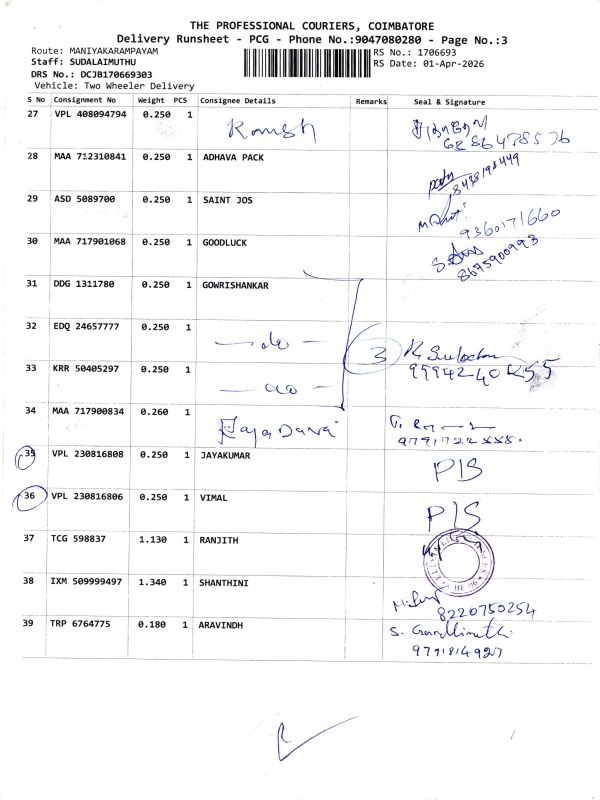 THE PROFESSIONAL COURIERS, COIMBATORE
Delivery Runsheet - PCG - Phone No.:9047080280 - Page No.:3
Route: MANIYAKARAMPAYAM
RS No.: 1706693
Staff: SUDALAIMUTHU
RS Date: 01-Apr-2026
DRS No.: DCJB170669303
Vehicle: Two Wheeler Delivery
S No Consignment No Weight PCS Consignee Details Remarks Seal & Signature
27 VPL 408094794 0.250 1 Ramesh
28 MAA 712310841 0.250 1 ADHAVA PACK 8438198449
29 ASD 5089700 0.250 1 SAINT JOS 9360171660
30 MAA 717901068 0.250 1 GOODLUCK 8675900993
31 DDG 1311780 0.250 1 GOWRISHANKAR
32 EDQ 24657777 0.250 1 -do- 3
33 KRR 50405297 0.250 1 -do-
34 MAA 717900834 0.260 1
35 VPL 230816808 0.250 1 JAYAKUMAR P/S
36 VPL 230816806 0.250 1 VIMAL P/S
37 TCG 598837 1.130 1 RANJITH
38 IXM 509999497 1.340 1 SHANTHINI 8220750254
39 TRP 6764775 0.180 1 ARAVINDH